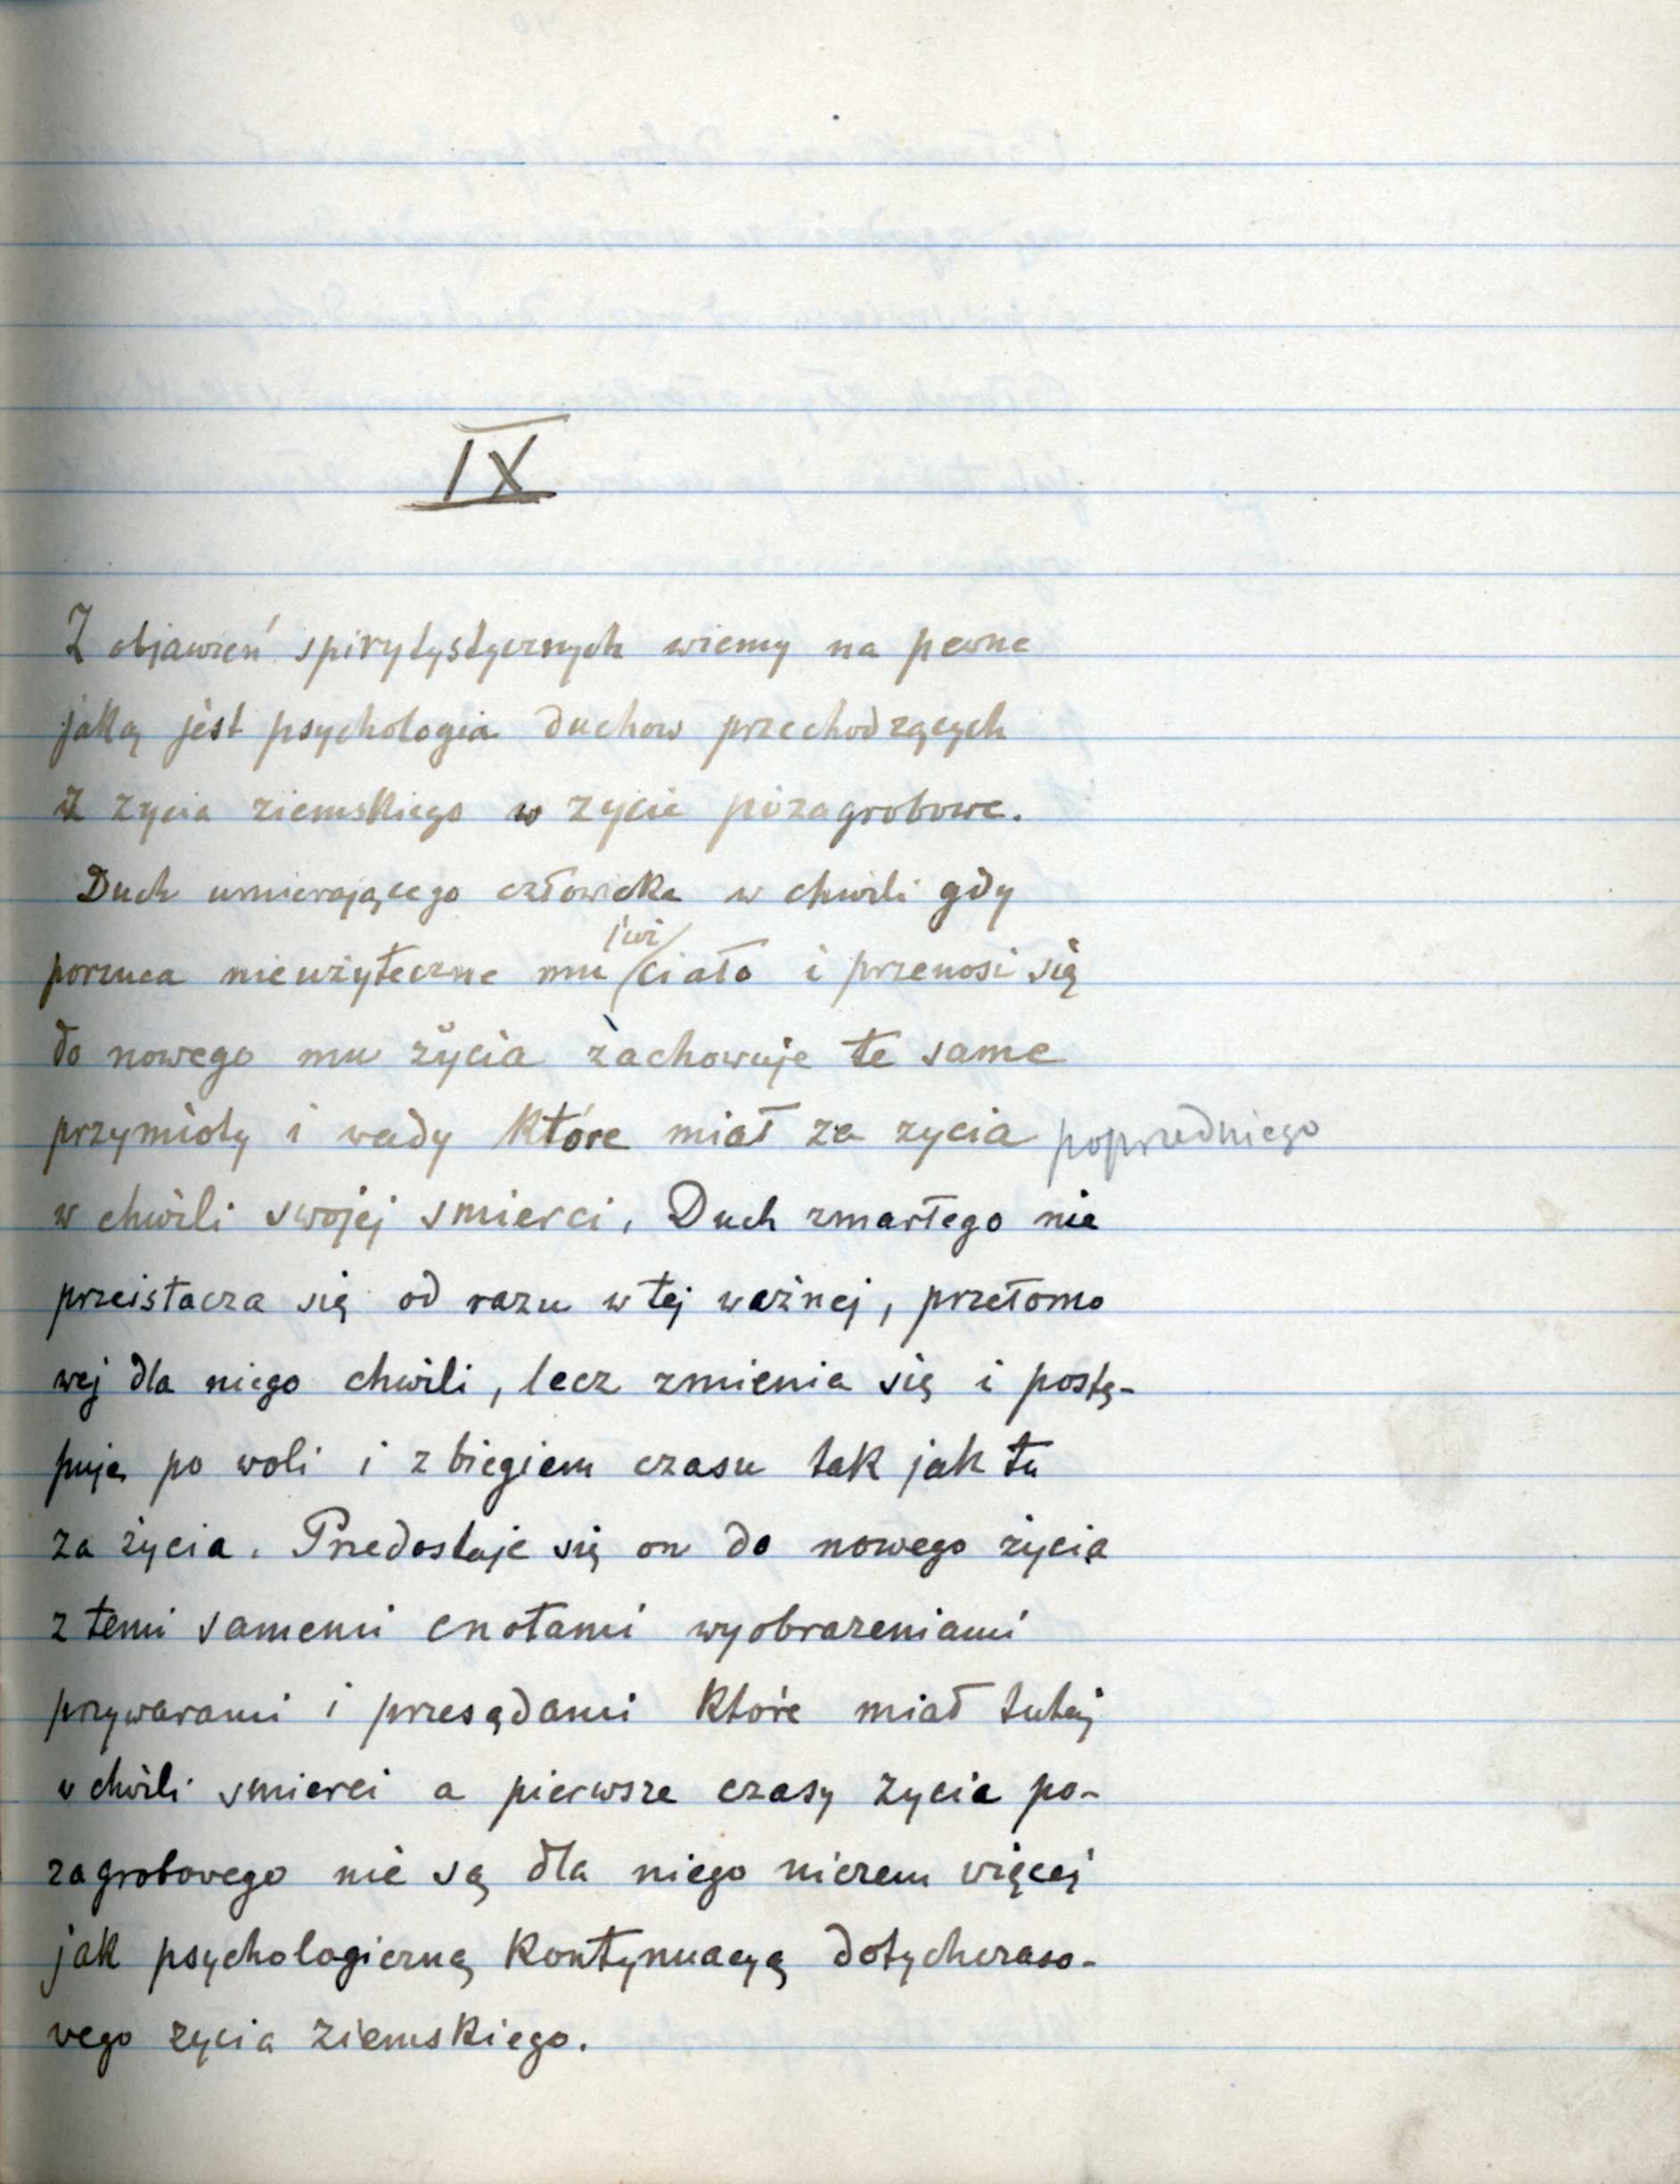 IX
Z objawień spirytystycznych wiemy na pewne
jaką jest psychologia duchow przechodzących
z zycia ziemskiego w zycie pozagrobowe.
Duch umierającego człowieka w chwili gdy
już
porzuca nieużyteczne mu ciało i przenosi się
do nowego mu życia zachowuje te same
przymioty i wady które miał za zycia poprzedniego
w chwili swojej smierci. Duch zmarłego nie
przeistacza się od razu w tej ważnej, przełomo
wej dla niego chwili, lecz zmienia się i postę-
puje po woli i z biegiem czasu tak jak tu
za życia. Przedostaje się on do nowego życia
z temi samemi cnotami wyobrazeniami
przywarami i przesądami które miał tutaj
w chwili smierci a pierwsze czasy zycia po-
zagrobowego nie są dla niego niczem więcej
jak psychologiczną kontynuacyą dotychczaso-
wego zycia ziemskiego.